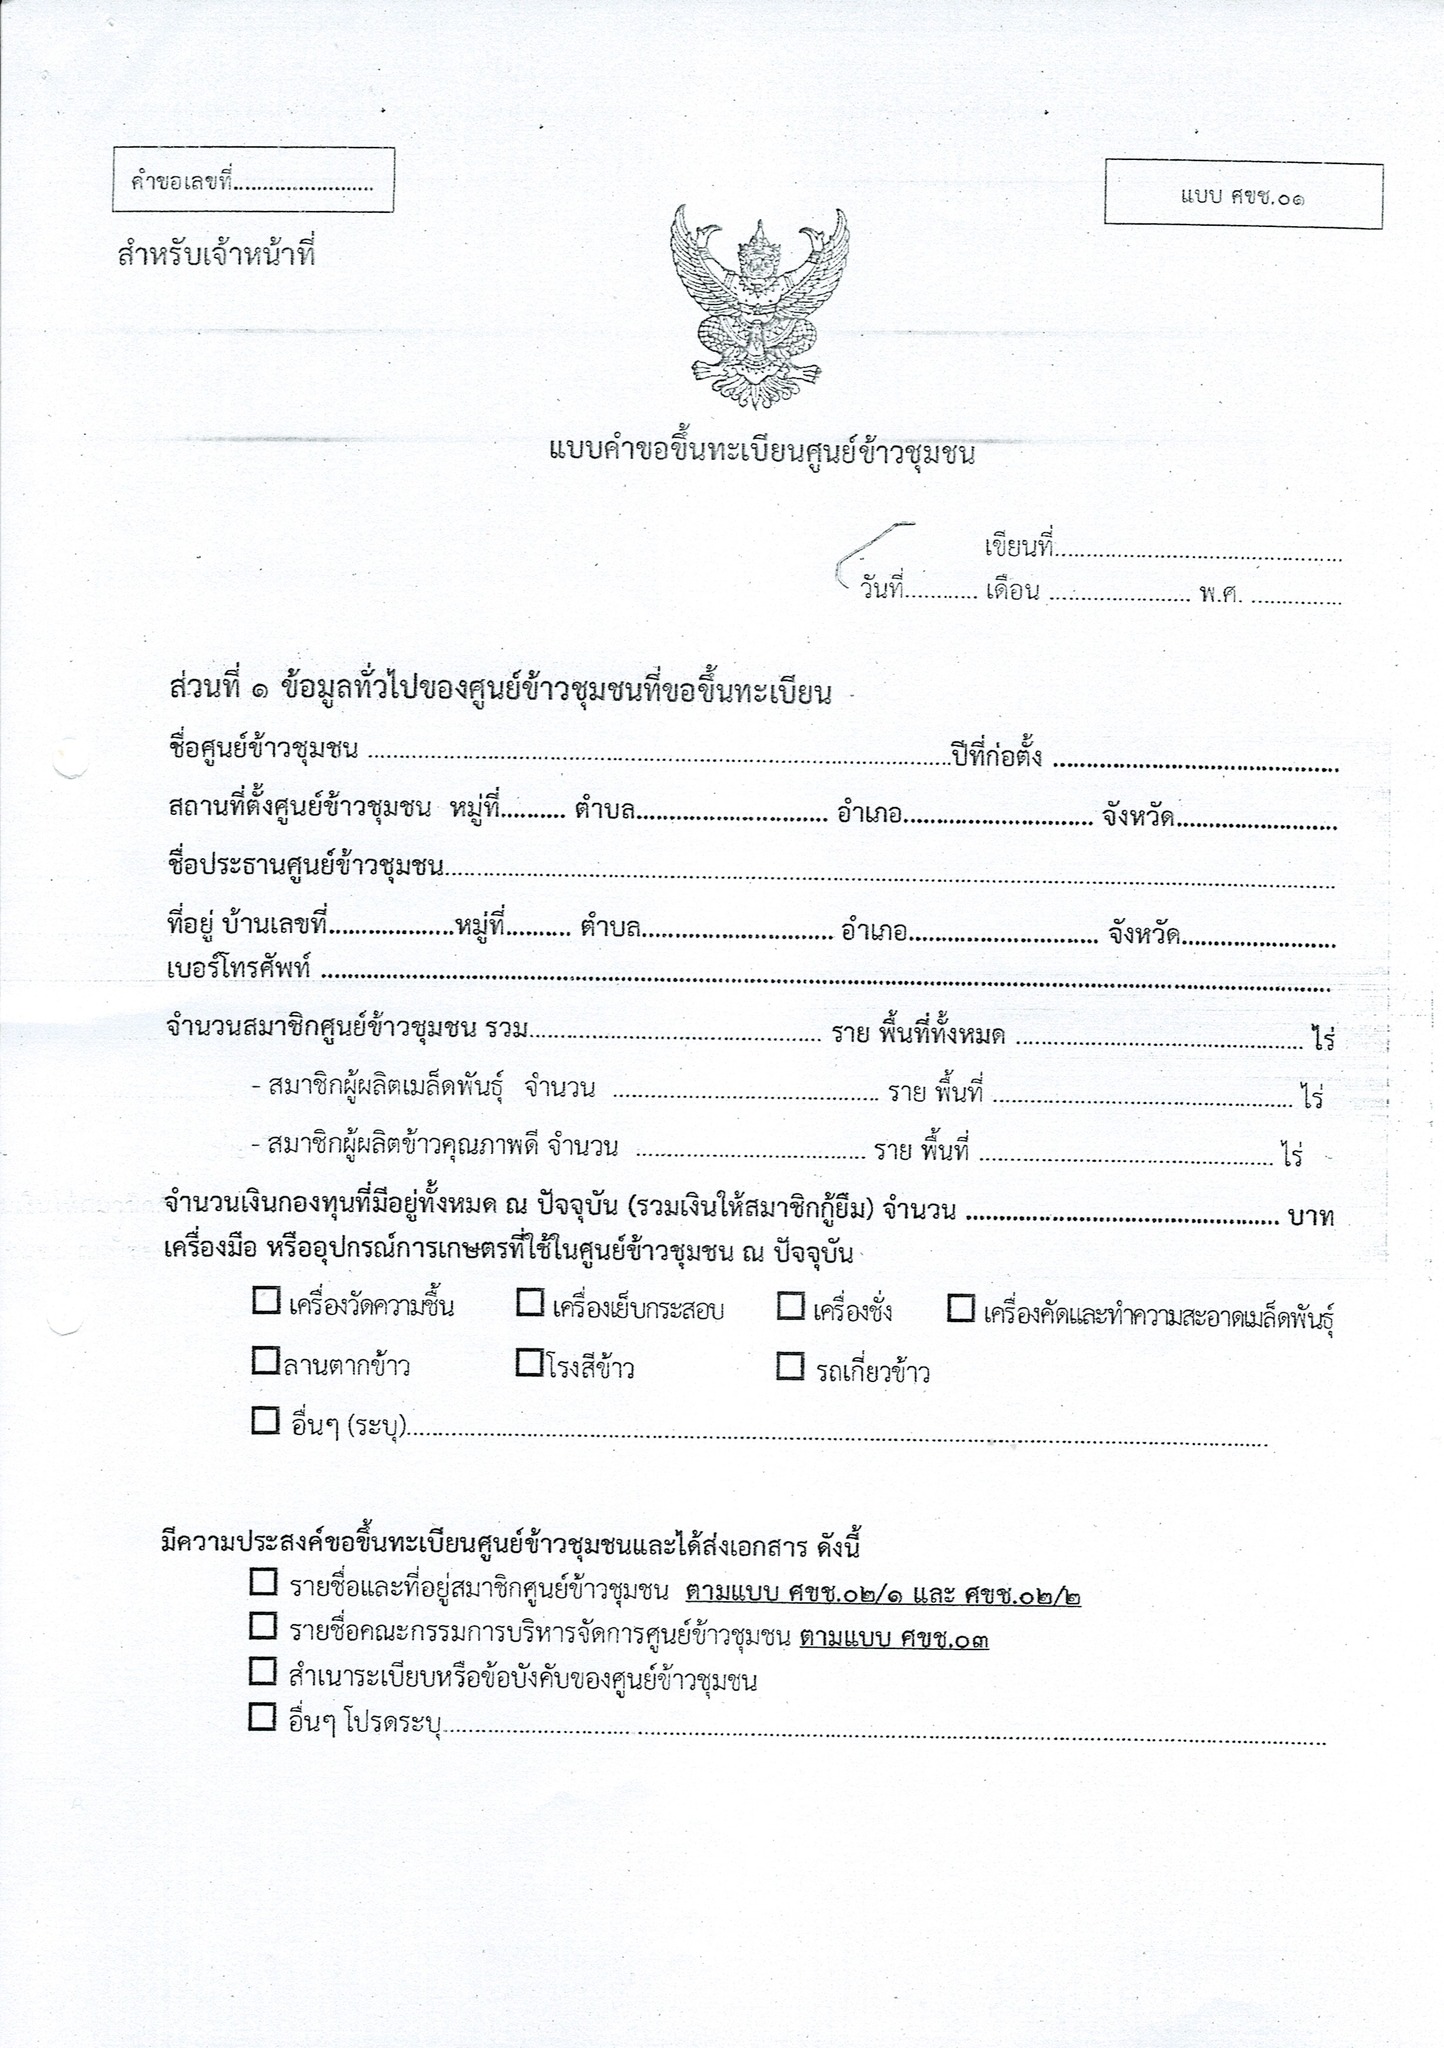 คำขอเลขที่........................
แบบ ศขช.๐๑
สำหรับเจ้าหน้าที่
แบบคำขอขึ้นทะเบียนศูนย์ข้าวชุมชน
เขียนที่................................................
วันที่............ เดือน ....................... พ.ศ. ...............
ส่วนที่ ๑ ข้อมูลทั่วไปของศูนย์ข้าวชุมชนที่ขอขึ้นทะเบียน
ชื่อศูนย์ข้าวชุมชน ................................................................ปีที่ก่อตั้ง ................................
สถานที่ตั้งศูนย์ข้าวชุมชน หมู่ที่.......... ตำบล.............................. อำเภอ.............................. จังหวัด.........................
ชื่อประธานศูนย์ข้าวชุมชน................................................................................
ที่อยู่ บ้านเลขที่....................หมู่ที่.......... ตำบล.............................. อำเภอ.............................. จังหวัด.........................
เบอร์โทรศัพท์ ................................................................................
จำนวนสมาชิกศูนย์ข้าวชุมชน รวม................................................ ราย พื้นที่ทั้งหมด ................................................ ไร่
- สมาชิกผู้ผลิตเมล็ดพันธุ์ จำนวน ............................................ ราย พื้นที่ ................................................ ไร่
- สมาชิกผู้ผลิตข้าวคุณภาพดี จำนวน ...................................... ราย พื้นที่ ................................................ ไร่
จำนวนเงินกองทุนที่มีอยู่ทั้งหมด ณ ปัจจุบัน (รวมเงินให้สมาชิกกู้ยืม) จำนวน ................................................ บาท
เครื่องมือ หรืออุปกรณ์การเกษตรที่ใช้ในศูนย์ข้าวชุมชน ณ ปัจจุบัน
☐ เครื่องวัดความชื้น ☐ เครื่องเย็บกระสอบ ☐ เครื่องชั่ง ☐ เครื่องคัดและทำความสะอาดเมล็ดพันธุ์
☐ ลานตากข้าว ☐ โรงสีข้าว ☐ รถเกี่ยวข้าว
☐ อื่นๆ (ระบุ)................................................................................
มีความประสงค์ขอขึ้นทะเบียนศูนย์ข้าวชุมชนและได้ส่งเอกสาร ดังนี้
☐ รายชื่อและที่อยู่สมาชิกศูนย์ข้าวชุมชน ตามแบบ ศขช.๐๒/๑ และ ศขช.๐๒/๒
☐ รายชื่อคณะกรรมการบริหารจัดการศูนย์ข้าวชุมชน ตามแบบ ศขช.๐๓
☐ สำเนาระเบียบหรือข้อบังคับของศูนย์ข้าวชุมชน
☐ อื่นๆ โปรดระบุ................................................................................